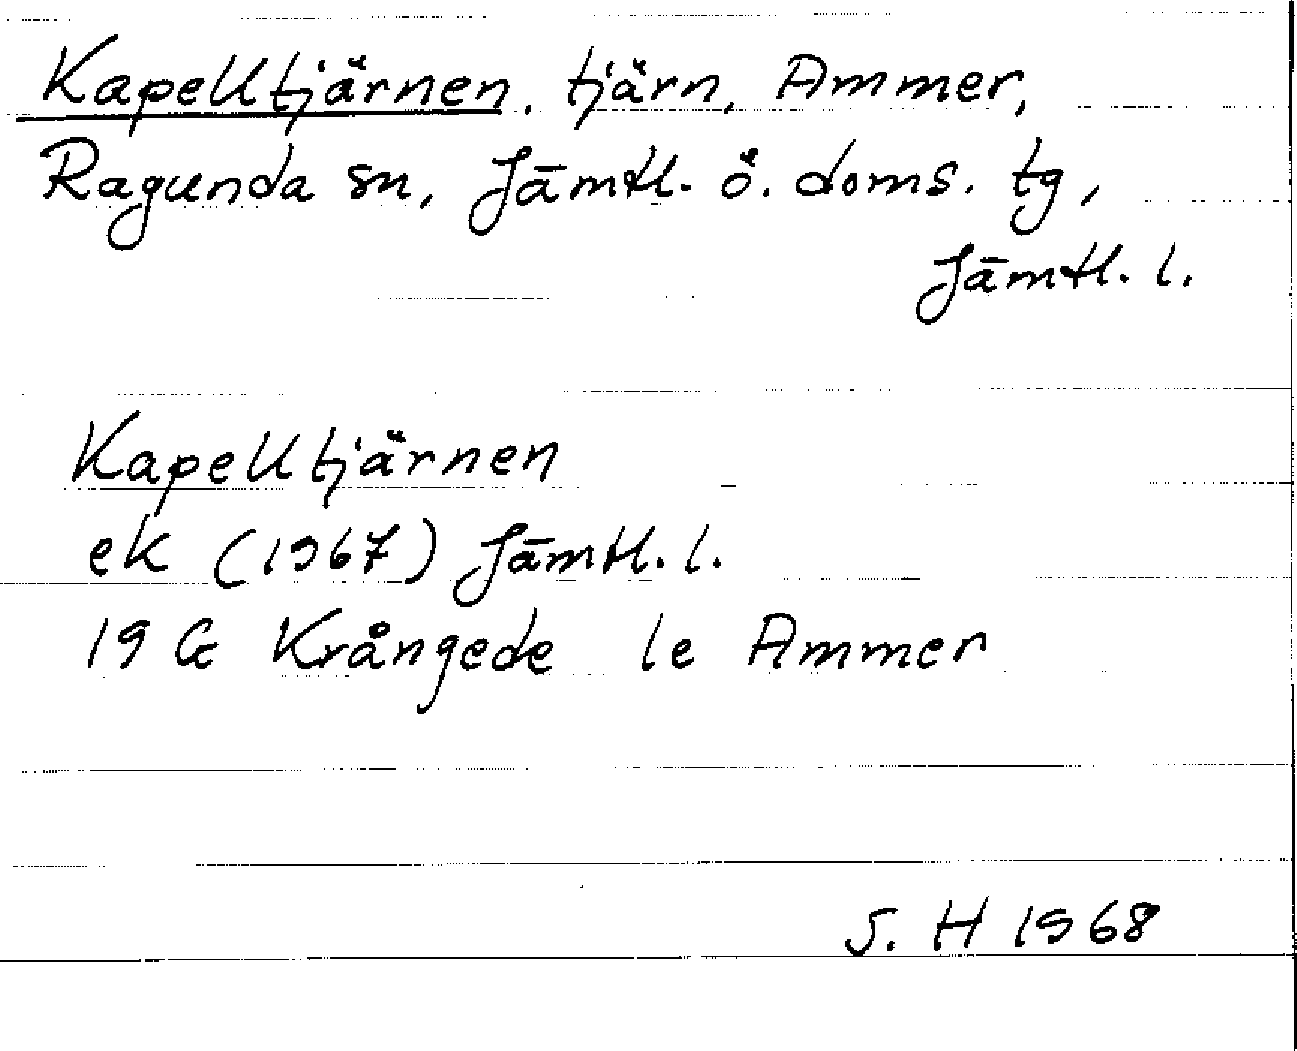 Kapelltjärnen, tjärn, Ammer,
Ragunda sn, Jämtl. ö. doms. tg,
Jämtl. l.
Kapelltjärnen
ek (1967) Jämtl. l.
19 G Krångede le Ammer
S. H 1968